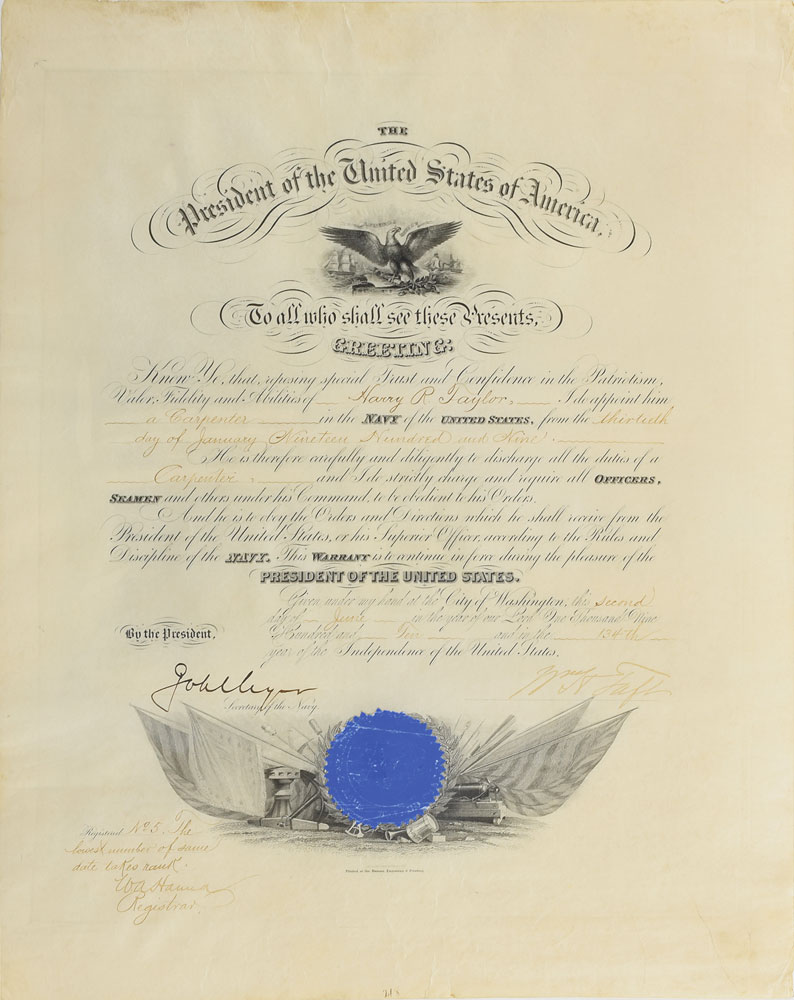 THE
President of the United States of America,
To all who shall see these Presents,
GREETING:
Know Ye, that, reposing special Trust and Confidence in the Patriotism,
Valor, Fidelity and Abilities of Harry R Taylor, I do appoint him
a Carpenter in the NAVY of the UNITED STATES, from the thirtieth
day of January Nineteen Hundred and Nine.
He is therefore carefully and diligently to discharge all the duties of a
Carpenter, and I do strictly charge and require all OFFICERS,
SEAMEN and others under his Command, to be obedient to his Orders.
And he is to obey the Orders and Directions which he shall receive from the
President of the United States, or his Superior Officer, according to the Rules and
Discipline of the NAVY. This WARRANT is to continue in force during the pleasure of the
PRESIDENT OF THE UNITED STATES.
Given under my hand at the City of Washington, this second
day of June in the year of our Lord One Thousand Nine
Hundred and Ten and in the 134th
year of the Independence of the United States.
By the President,
Wm H Taft
Secretary of the Navy.
Registered No 5. The
lowest number of same
date takes rank.
Registrar.
Printed at the Bureau, Engraving & Printing.